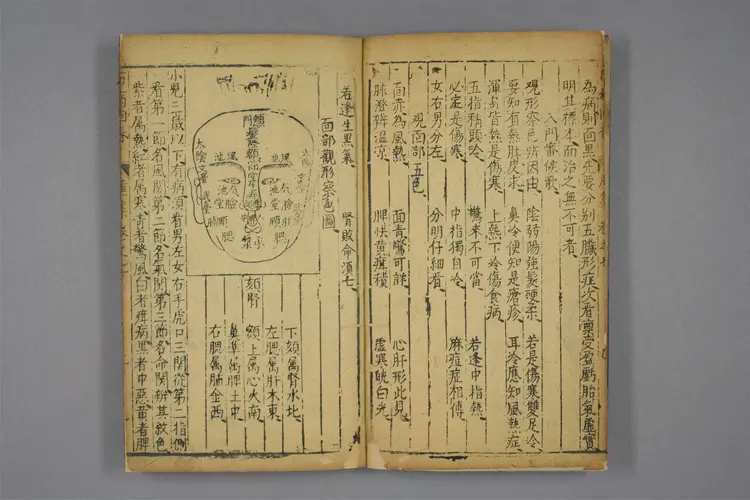 為病則面黑先要分別五臟形症次看稟受盈虧胎氣虛實
明其標本而治之無不可者
入門審候歌
觀形察色辨因由 陰弱陽強髮硬柔 若是傷寒雙足冷
要知有熱肚皮求 鼻冷便知是瘡疹 耳冷應知風熱症
渾身皆熱是傷寒 上熱下冷傷食病
五指稍頭冷 驚來不可當 若逢中指熱
必定是傷寒 中指獨自冷 麻痘症相傳
女右男分左 分明仔細看
觀面部五色
面赤為風熱 面青驚可詳 心肝形此見
脉證辨溫凉 脾怯黄疳積 虛寒㿠白光
若逢生黑氣 腎敗命須亡
面部觀形察色圖
太陰文臺
風池
氣池
頦腎
下頦屬腎水北
左腮屬肝木東
額上屬心火南
鼻準屬脾土中
右腮屬肺金西
小兒三歲以下有病須看男左女右手虎口三關從第二指側
看第一節名風關第二節名氣關第三節名命關辨其紋色
紫者屬熱紅者屬寒青者驚風白者疳病黑者中惡黄者脾